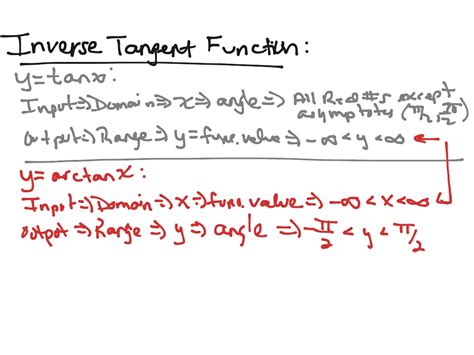 Inverse Tangent Function:
y=tanx:
Input⇒Domain⇒x⇒angle⇒ All Real #s except
asymptotes (π/2, 3π/2)
output⇒Range⇒y=func. value⇒ -∞<y<∞ ←
y=arctanx:
Input⇒Domain⇒x⇒func. value⇒ -∞<x<∞
output⇒Range⇒y⇒angle⇒ -π/2<y<π/2